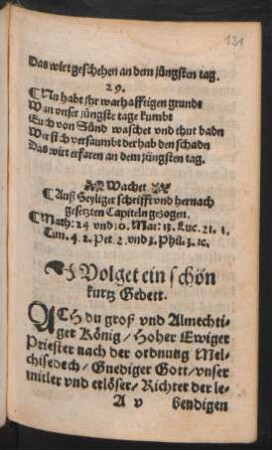 131
Das wirt geschehen an dem jüngsten tag.
29.
¶Nu habt jhr warhafftigen grundt
Wan vnser jüngste tage kumbt
Euch von Sünd waschet vnd thut badn
Wer sich versaumbt der hab den schadn
Das wirt erfaren an dem jüngsten tag.
Wachet
¶Auß Heyliger schrifft vnd hernach
gesetzten Capiteln gezogen.
¶Math: 24 vnd 10. Mar: 13. Luc. 21. 1.
Tim. 4. 2. Pet. 2. vnd 3. Phil: 3. ꝛc.
Volget ein schön
kurtz Gebett.
ACH du groß vnd Almechti-
ger König / Hoher Ewiger
Priester nach der ordnung Mel-
chisedech / Gnediger Gott / vnser
mitler vnd erlöser / Richter der le-
A v bendigen